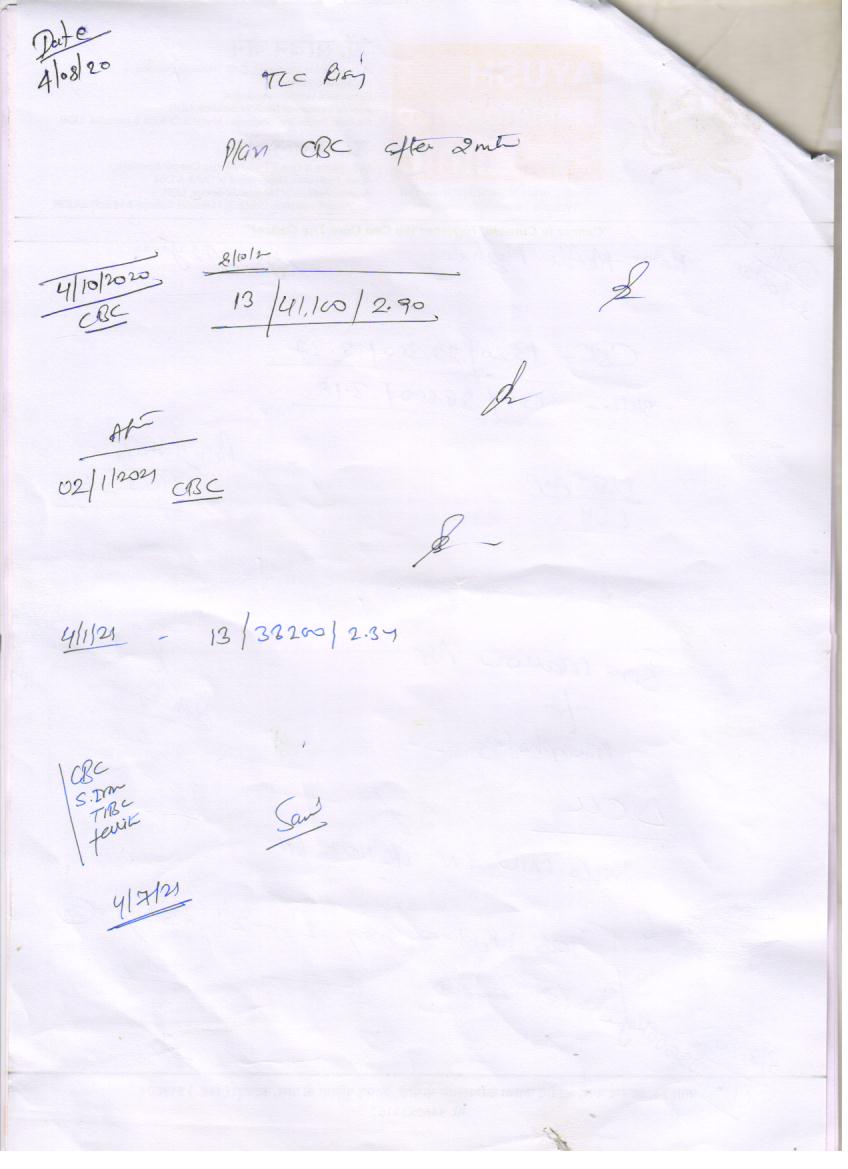 Date
4/08/20
TLC Rising
Plan CBC after 2 mth
4/10/2020
CBC
8/10/2
13 / 41,100 / 2.90
02/1/2021 CBC
4/1/21 - 13 / 38200 / 2.34
CBC
S. Iron
TIBC
4/7/21